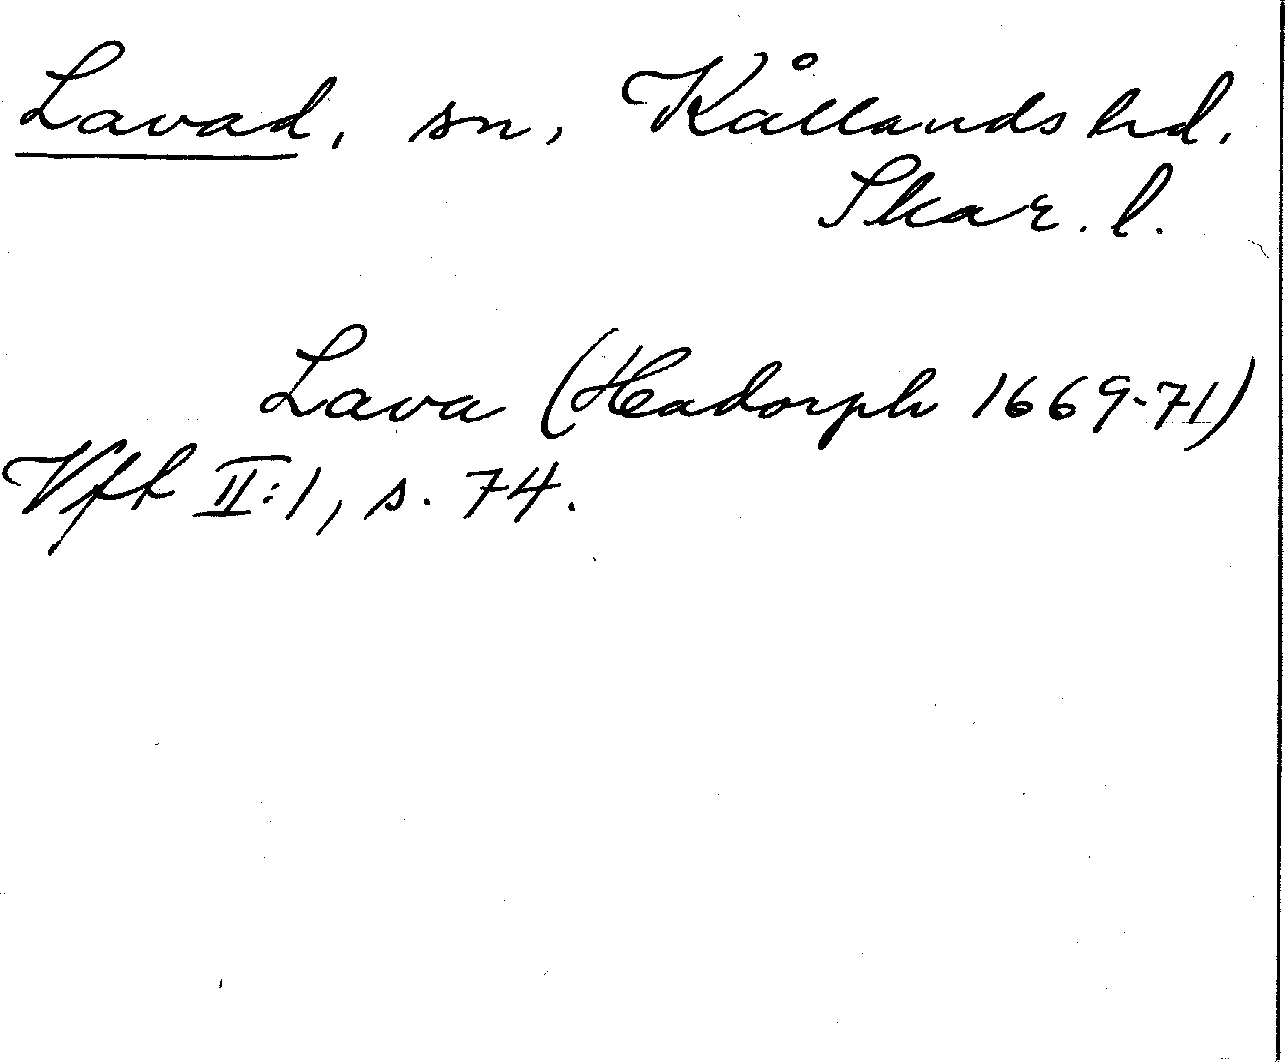 Lavad, sn, Kållands hd.
Skar. l.
Lava (Hadorph 1669-71)
Vft II:1, s. 74.